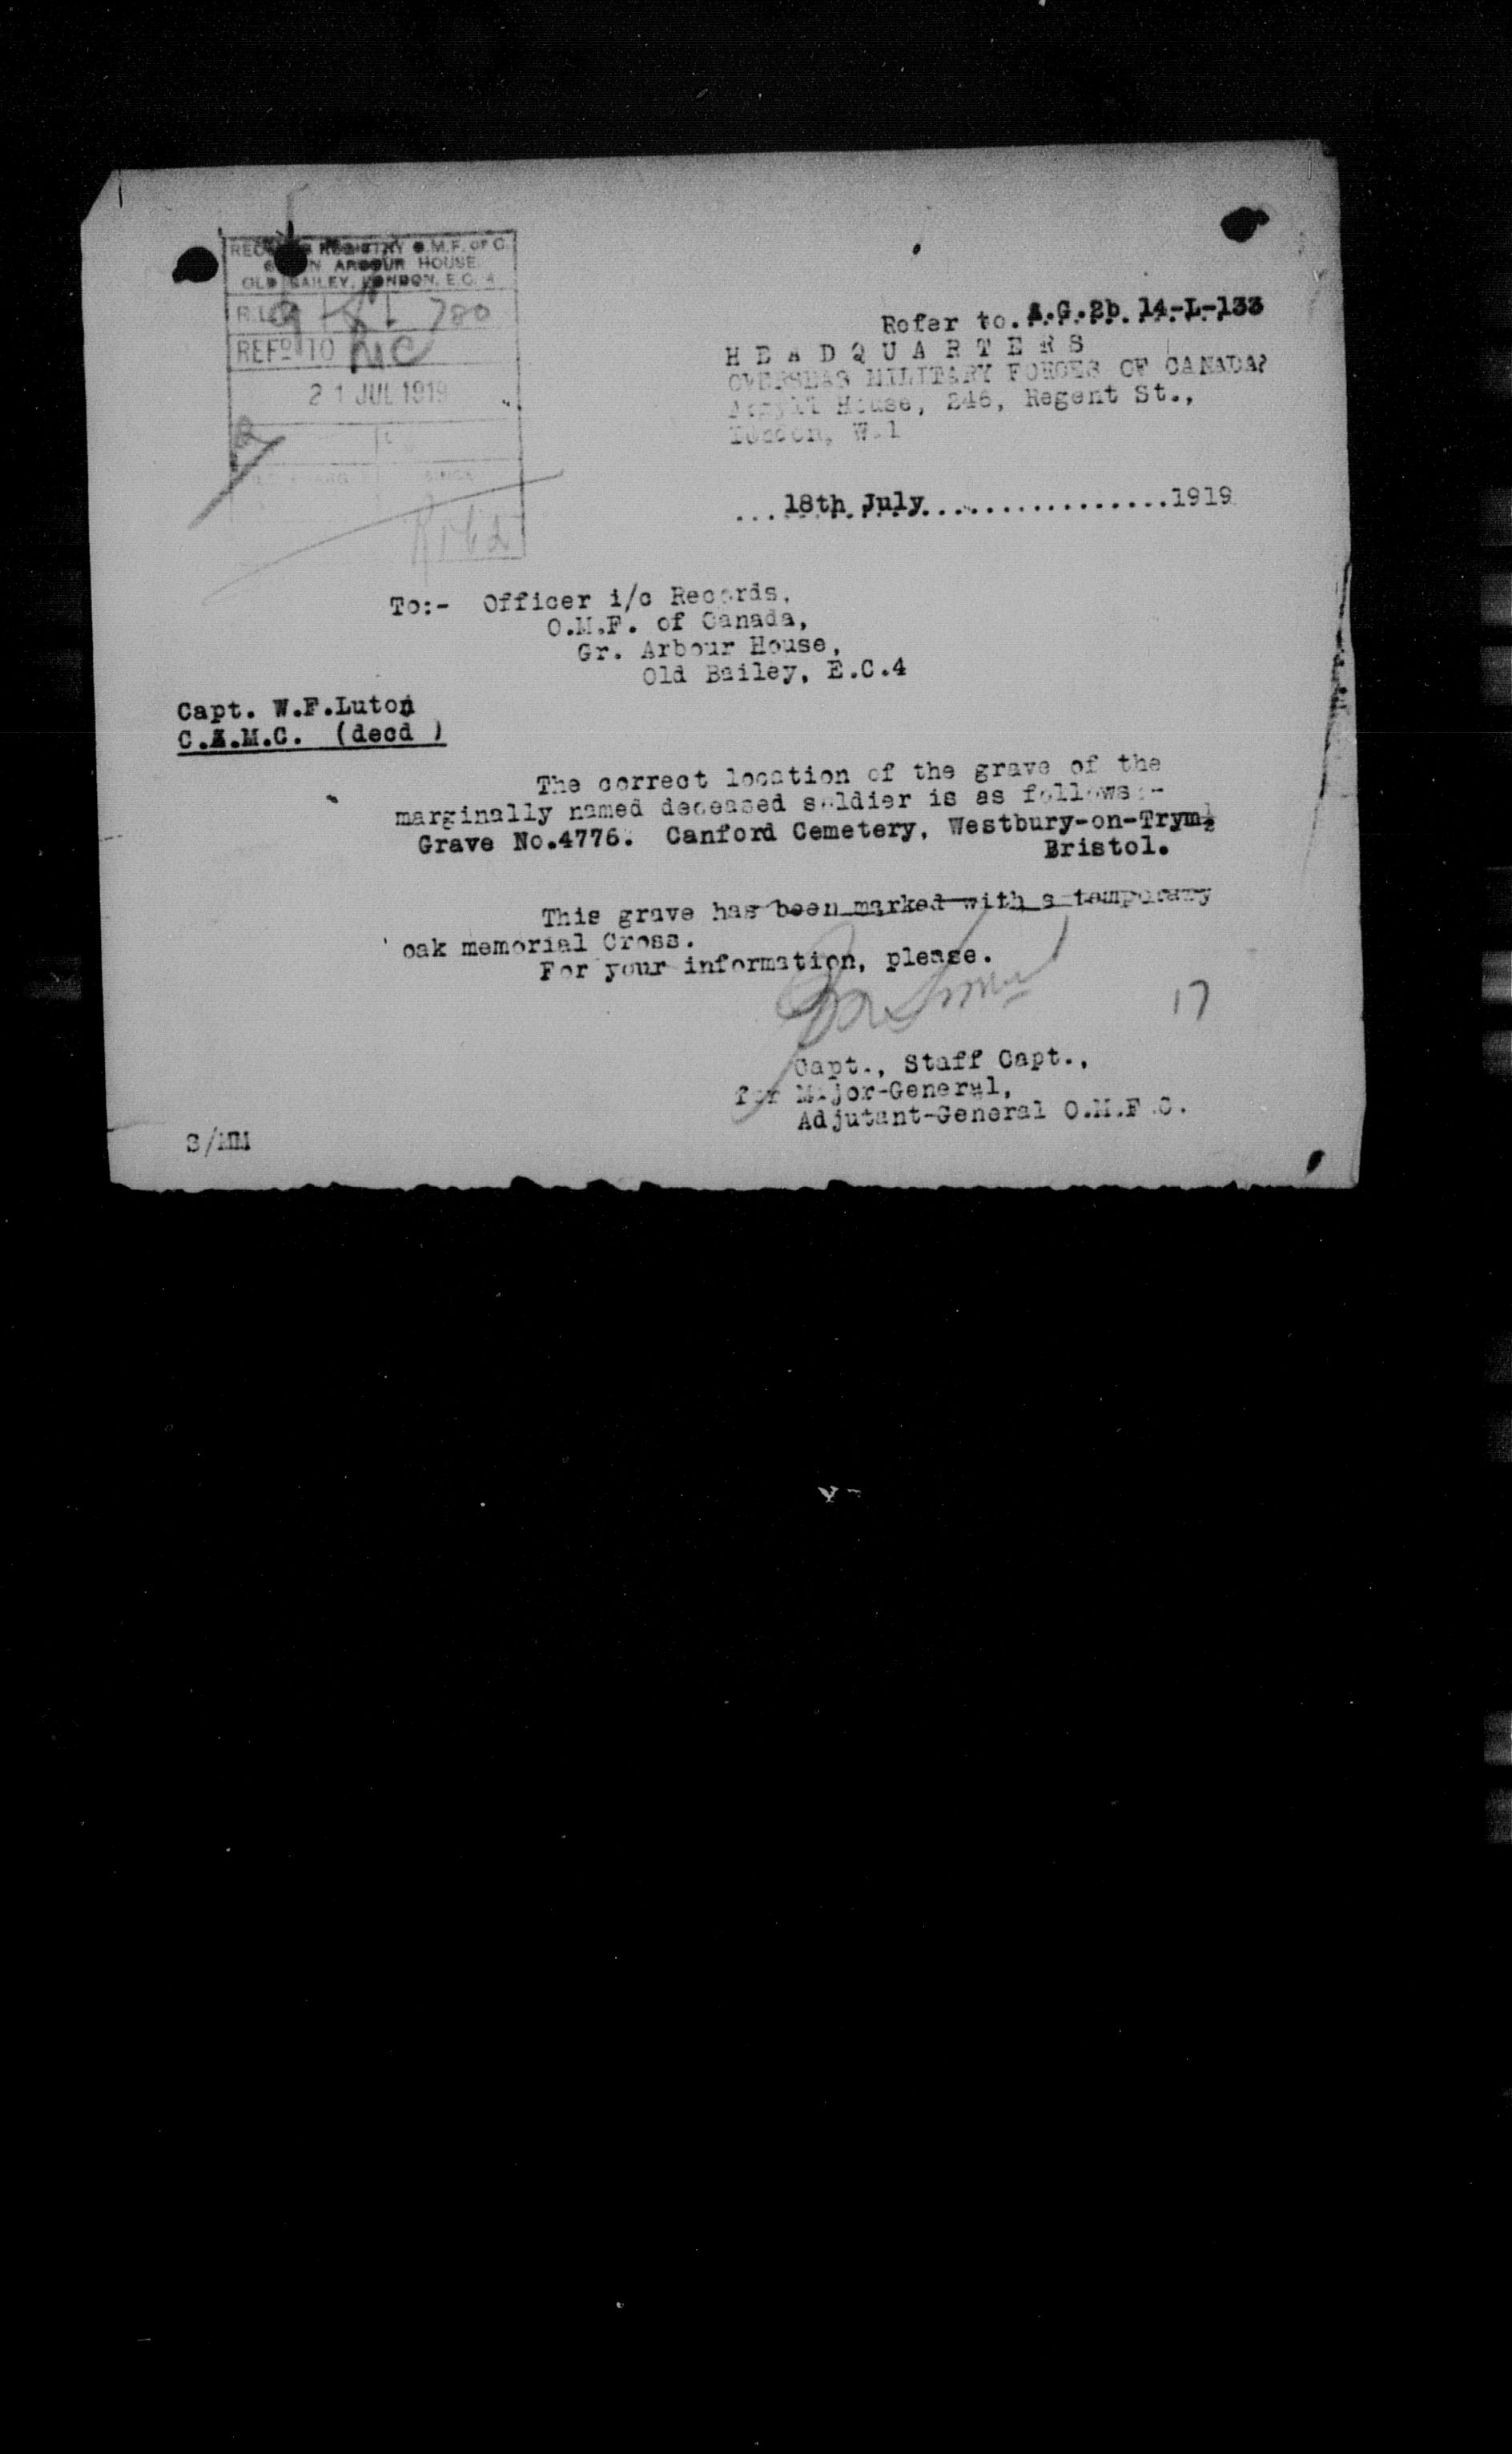 RECORDS REGISTRY O.M.F. OF C.
GREEN ARBOUR HOUSE
OLD BAILEY, LONDON, E.C. 4.
R.L. 9-L-780
REFD TO
21 JUL 1919
Refer to. A.G.2b 14-L-133
HEADQUARTERS
OVERSEAS MILITARY FORCES OF CANADA?
Argyll House, 246, Regent St.,
London, W.1
...18th July...................1919
To:- Officer i/c Records,
O.M.F. of Canada,
Gr. Arbour House,
Old Bailey, E.C.4
Capt. W.F.Luton
C.A.M.C. (decd )
The correct location of the grave of the
marginally named deceased soldier is as follows:-
Grave No.4776. Canford Cemetery, Westbury-on-Trym,
Bristol.
This grave has been marked with a temporary
oak memorial Cross.
For your information, please.
17
Capt., Staff Capt.,
for Major-General,
Adjutant-General O.M.F.C.
S/MM